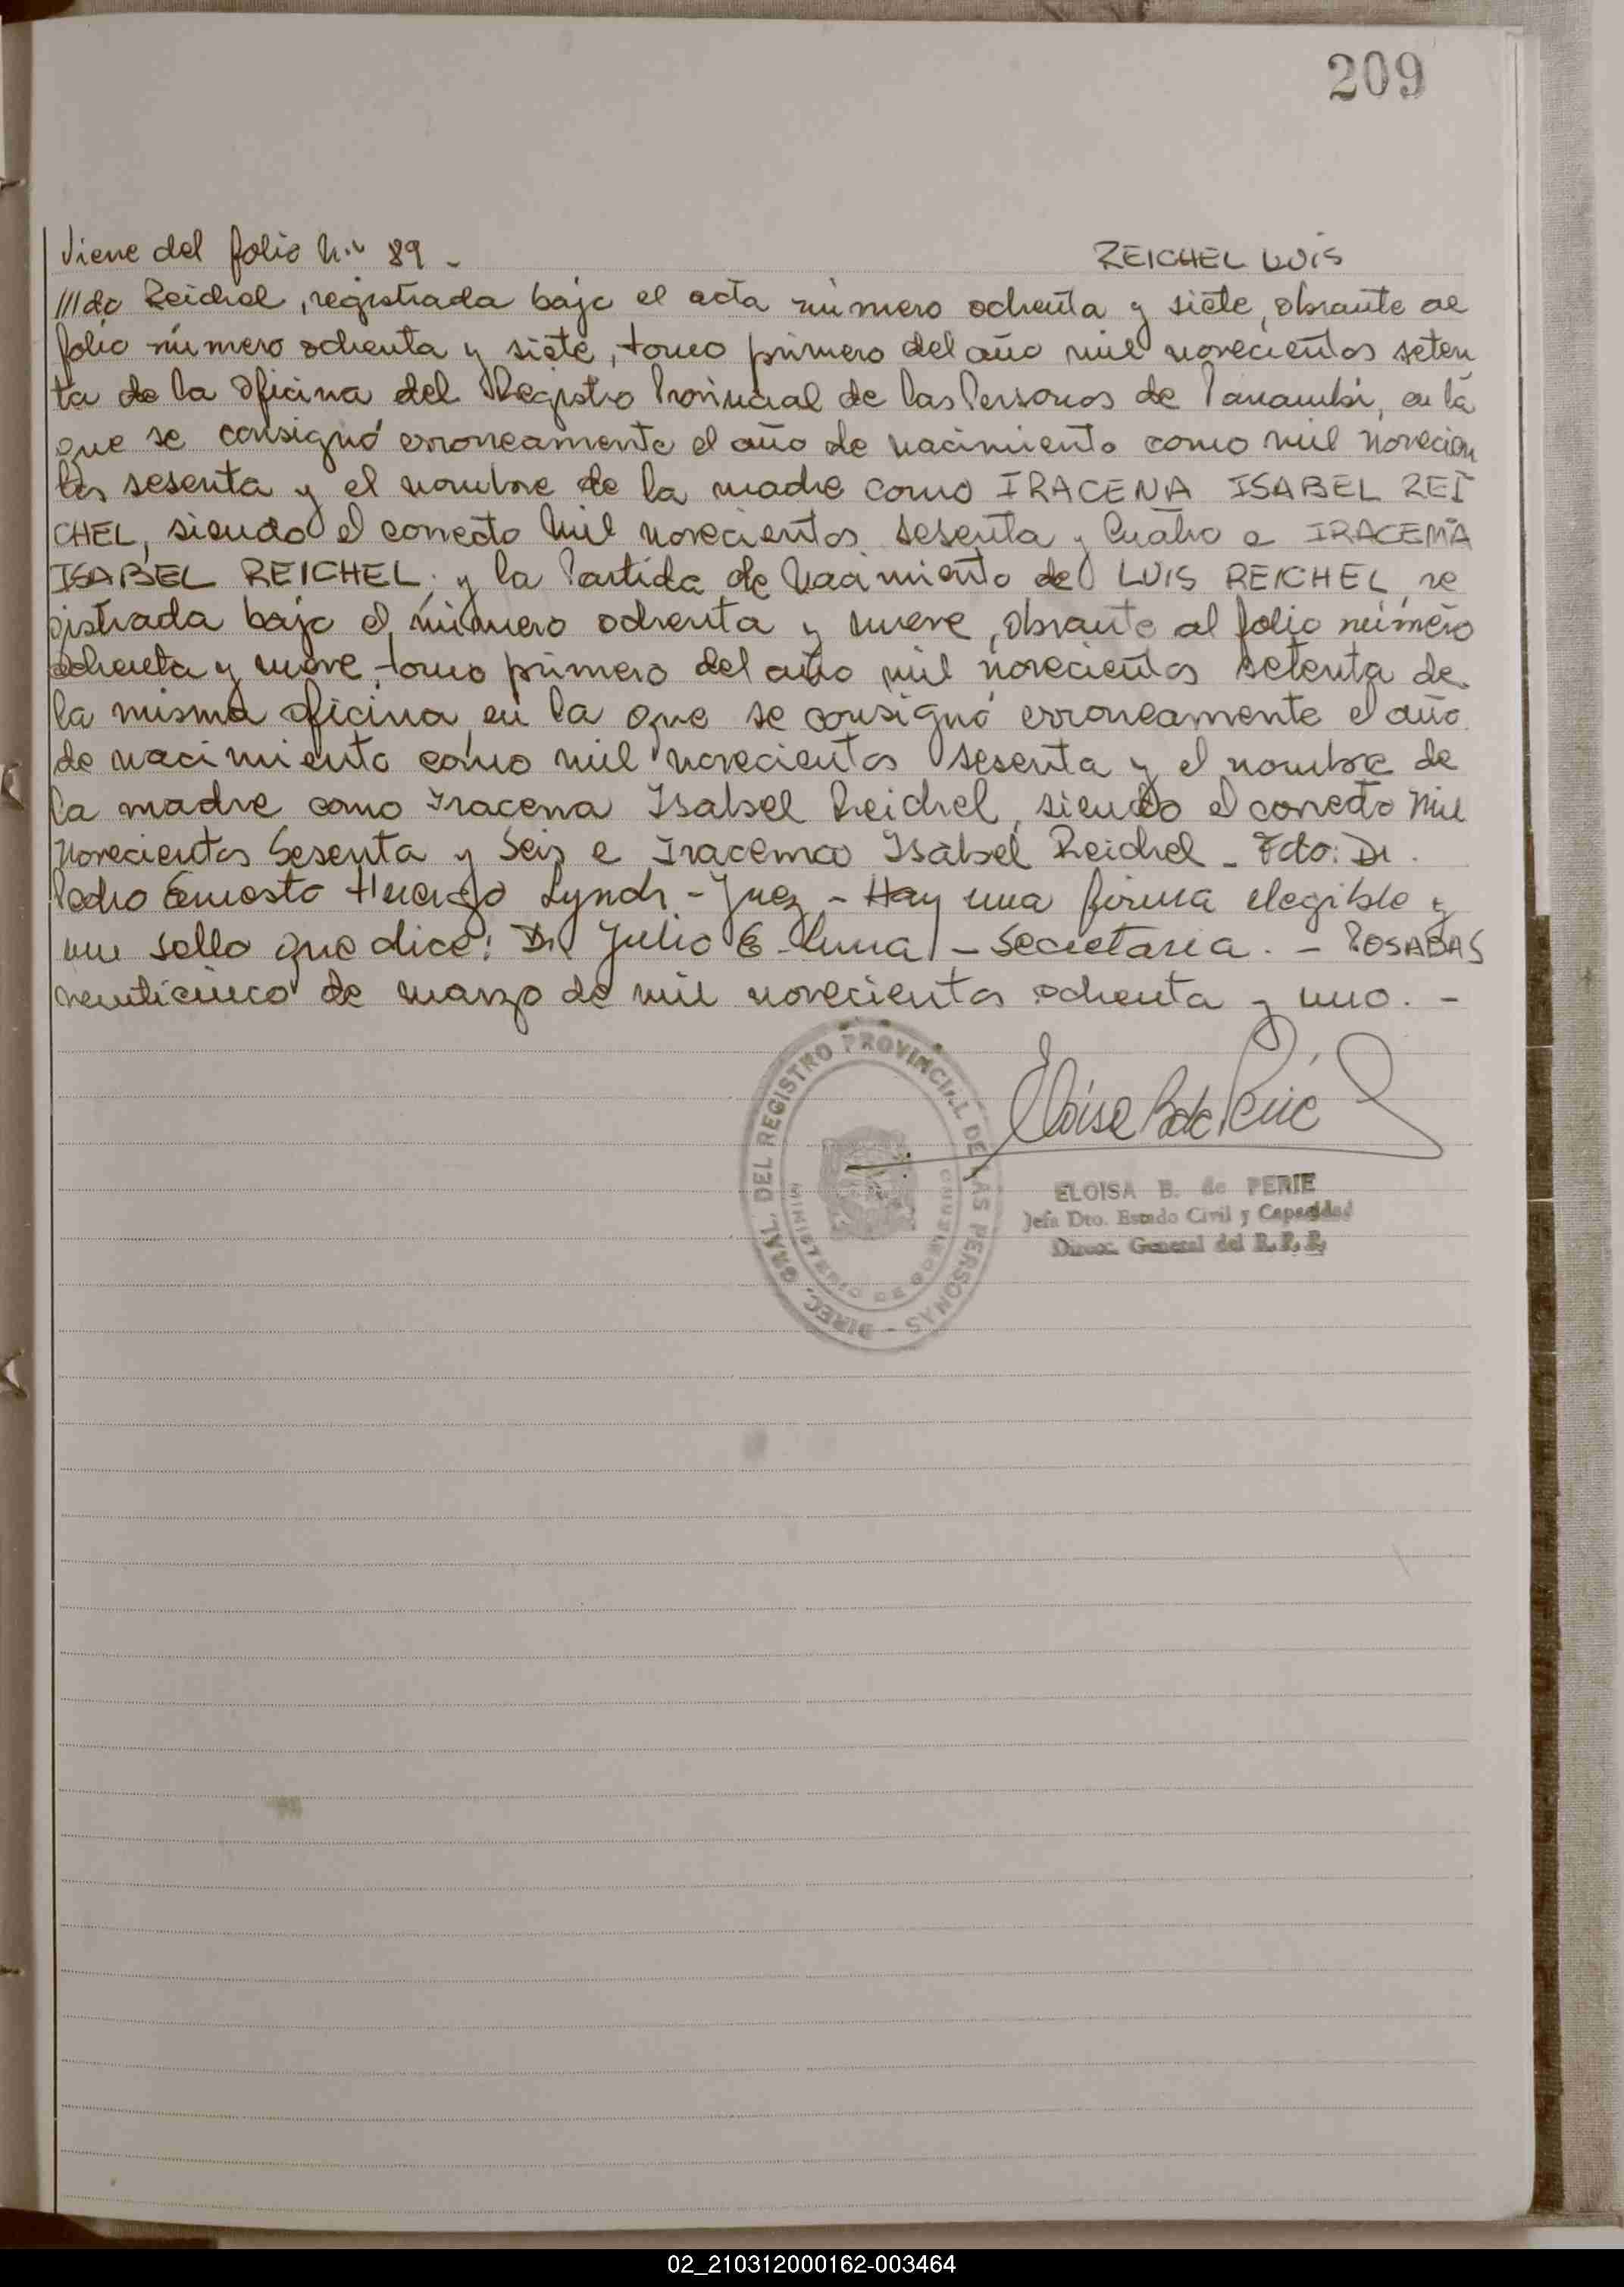 209
Viene del folio N.º 89 -
REICHEL LUIS
///do Reichel, registrada bajo el acta número ochenta y siete, obrante al
folio número ochenta y siete, tomo primero del año mil novecientos seten
ta de la Oficina del Registro Provincial de las Personas de Panambí, en la
que se consignó erroneamente el año de nacimiento como mil novecien
tos sesenta y el nombre de la madre como IRACENA ISABEL REI
CHEL, siendo el correcto Mil novecientos sesenta y Cuatro e IRACEMA
ISABEL REICHEL; y la Partida de Nacimiento de LUIS REICHEL, re
gistrada bajo el número ochenta y nueve, obrante al folio número
ochenta y nueve, tomo primero del año mil novecientos setenta de
la misma oficina, en la que se consignó erroneamente el año
de nacimiento como mil novecientos sesenta y el nombre de
la madre como Iracena Isabel Reichel, siendo el correcto Mil
Novecientos Sesenta y Seis e Iracema Isabel Reichel - Fdo: Dr.
Pedro Ernesto Huergo Lynch - Juez - Hay una firma elegible y
un sello que dice: Dr. Julio E. Luna - Secretaria. - POSADAS
veinticinco de marzo de mil novecientos ochenta y uno. -
Eloisa B de Perié
DIREC. GRAL. DEL REGISTRO PROVINCIAL DE LAS PERSONAS -
MINISTERIO DE GOBIERNO
ELOISA B. de PERIE
Jefa Dto. Estado Civil y Capacidad
Direcc. General del R. P. P.
02_210312000162-003464